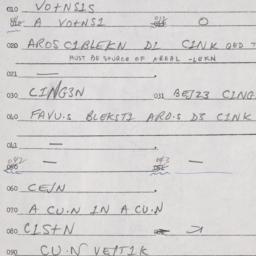 010 VO+NS1S
A VO+NS1 O
020 AROS C1BLEKN D1 C1NK QED T
MUST BE SOURCE OF AREAL -LEKN
021 —
030 C1NG3N 031 BEJ23 C1NG
040 FAVU.S BLEKST1 ARO.S D3 C1NK
041 —
042 — 043 —
060 CEJN
070 A CU.N 1N A CU.N
080 C1S+N
090 CU.N VE/T1K